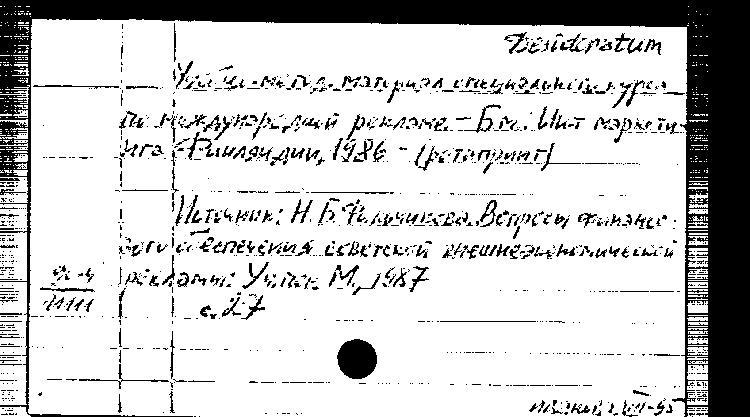 Desideratum
Учебн.-метод. материал специального курса
по международной рекламе. - Б.м.: Инт маркети-
нга Финляндии, 1986 - (ротапринт)
Источник: Н. Б. Фильчикова. Вопросы финансо-
вого обеспечения советской внешнеэкономической
рекламы: М., 1987
с. 27